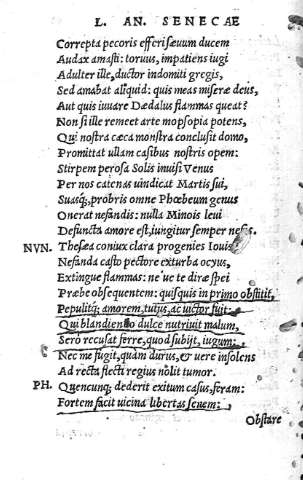 L. AN. SENECAE
Correpta pecoris efferi sæuum ducem
Audax amasti: toruus, impatiens iugi
Adulter ille, ductor indomiti gregis,
Sed amabat aliquid: quis meas miseræ deus,
Aut quis iuuare Dædalus flammas queat?
Non si ille remeet arte mopsopia potens,
Qui nostra cæca monstra conclusit domo,
Promittat ullam casibus nostris opem:
Stirpem perosa Solis inuisi Venus
Per nos catenas uindicat Martis sui,
Suasq; probris omne Phœbeum genus
Onerat nefandis: nulla Minois leui
Defuncta amore est, iungitur semper nefas.
NVN. Thesæa coniux clara progenies Iouis
Nefanda casto pectore exturba ocyus,
Extingue flammas: ne'ue te diræ spei
Præbe obsequentem: quisquis in primo obstitit,
Pepulitq; amorem, tutus, ac uictor fuit:
Qui blandiendo dulce nutriuit malum,
Sero recusat ferre, quod subijt, iugum:
Nec me fugit, quàm durus, & uere insolens
Ad recta flecti regius nolit tumor.
PH. Quencunq; dederit exitum casus, feram:
Fortem facit uicina libertas senem:
Obstare